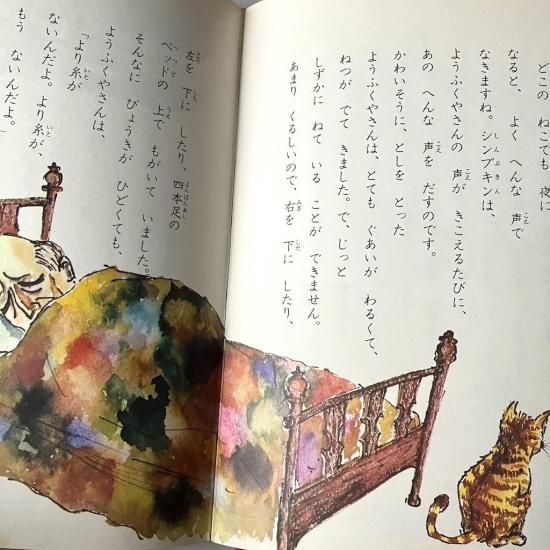 どこの ねこでも 夜に
なると、よく へんな 声で
なきますね。シンプキンは、
ようふくやさんの 声が きこえるたびに、
あの へんな 声を だすのです。
かわいそうに、としを とった
ようふくやさんは、とても ぐあいが わるくて、
ねつが でて きました。で、じっと
しずかに ねて いる ことが できません。
あまり くるしいので、右を 下に したり、
左を 下に したり、四本足の
ベッドの 上で もがいて いました。
そんなに びょうきが ひどくても、
ようふくやさんは、
「より糸が
ないんだよ。より糸が、
もう ないんだよ。